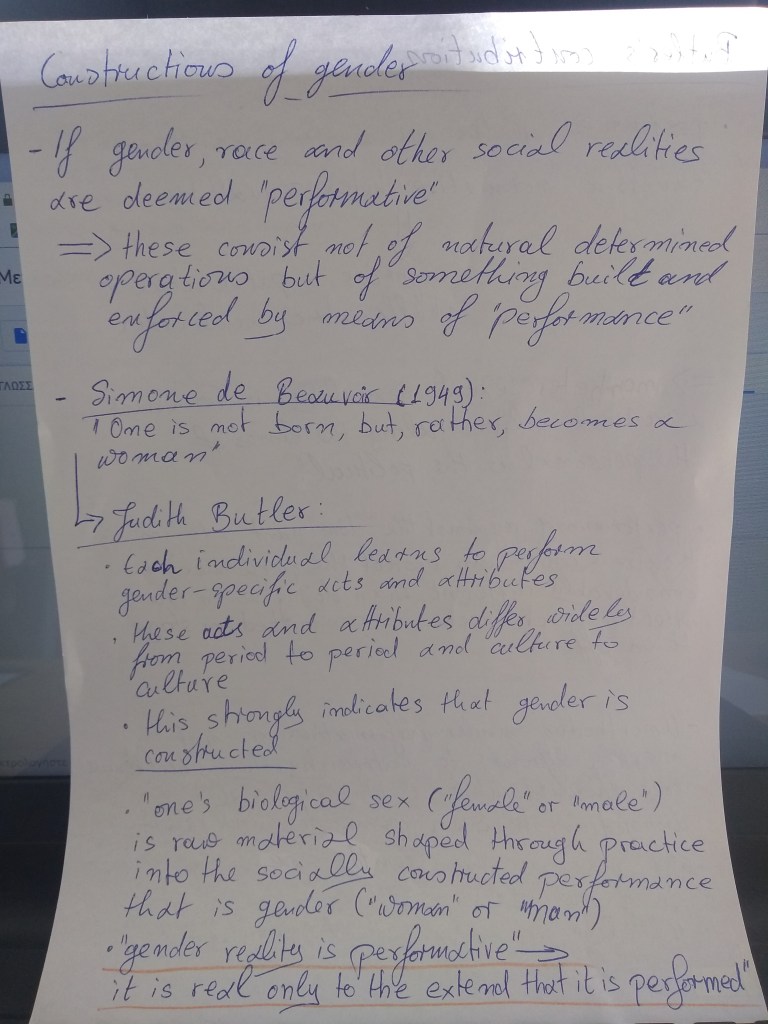 Constructions of gender
- If gender, race and other social realities
are deemed "performative"
=> these consist not of natural determined
operations but of something built and
enforced by means of "performance"
- Simone de Beauvoir (1949):
"One is not born, but, rather, becomes a
woman"
↳ Judith Butler:
• Each individual learns to perform
gender-specific acts and attributes
• these acts and attributes differ widely
from period to period and culture to
culture
• this strongly indicates that gender is
constructed
• "one's biological sex ("female" or "male")
is raw material shaped through practice
into the socially constructed performance
that is gender ("woman" or "man")
• "gender reality is performative" →
it is real only to the extend that it is performed"